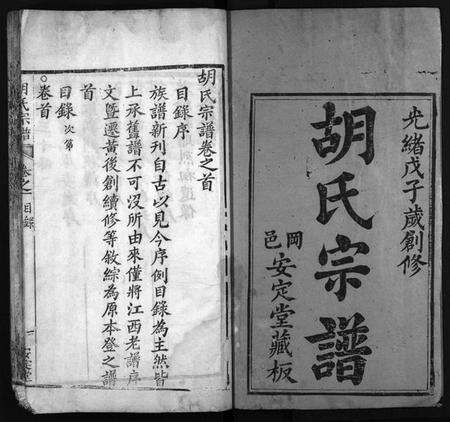 光緒戊子歲創修
胡氏宗譜
岡邑
安定堂藏板
胡氏宗譜卷之首
目錄序
族譜新刊自古以見今序例目錄為主然皆
上承舊譜不可沒所由來僅將江西老譜序
文暨遷黃後創續修等敘綜為原本登之譜
首
目錄次第
卷首
胡氏宗譜
卷之首
目錄
一